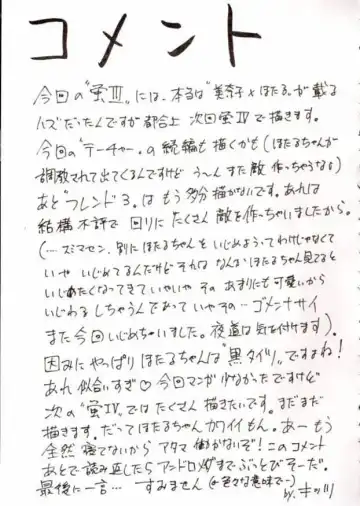 コメント
今回の"蛍III"には、本当は"美奈子×ほたる"が載る
ハズだったんですが都合上 次回蛍IVで描きます。
今回の"テーチャー"の続編も描くかも(ほたるちゃんが
調教されて出てくるんですけど う〜んまた敵 作っちゃうなぁ)
あと"フレンド3"はもう多分描かないです。あれは
結構不評で 回りにたくさん敵を作っちゃいましたから。
(…スミマセン、別にほたるちゃんをいじめようってわけじゃなくて
いや いじめてるんだけど それは なんかほたるちゃん見てると
いじめたくなってきて いやいや その あまりにも可愛いから
いじわるしちゃうんであって いやその…ゴメンナサイ
また今回いじめちゃいました。夜道は気を付けます)。
因みにやっぱりほたるちゃんは"黒タイツ"ですよね!
あれ似合いすぎ♡今回マンガ少なかったですけど
次の"蛍IV"ではたくさん描きたいです。まだまだ
描きます。だってほたるちゃんカワイイもん。あーもう
全然寝てないからアタマ働かないぞ!このコメント
あとで読み直したらアンドロメダまでぶっとびそーだ。
最後に一言… すみません(←色々な意味で…)
by.キッツ